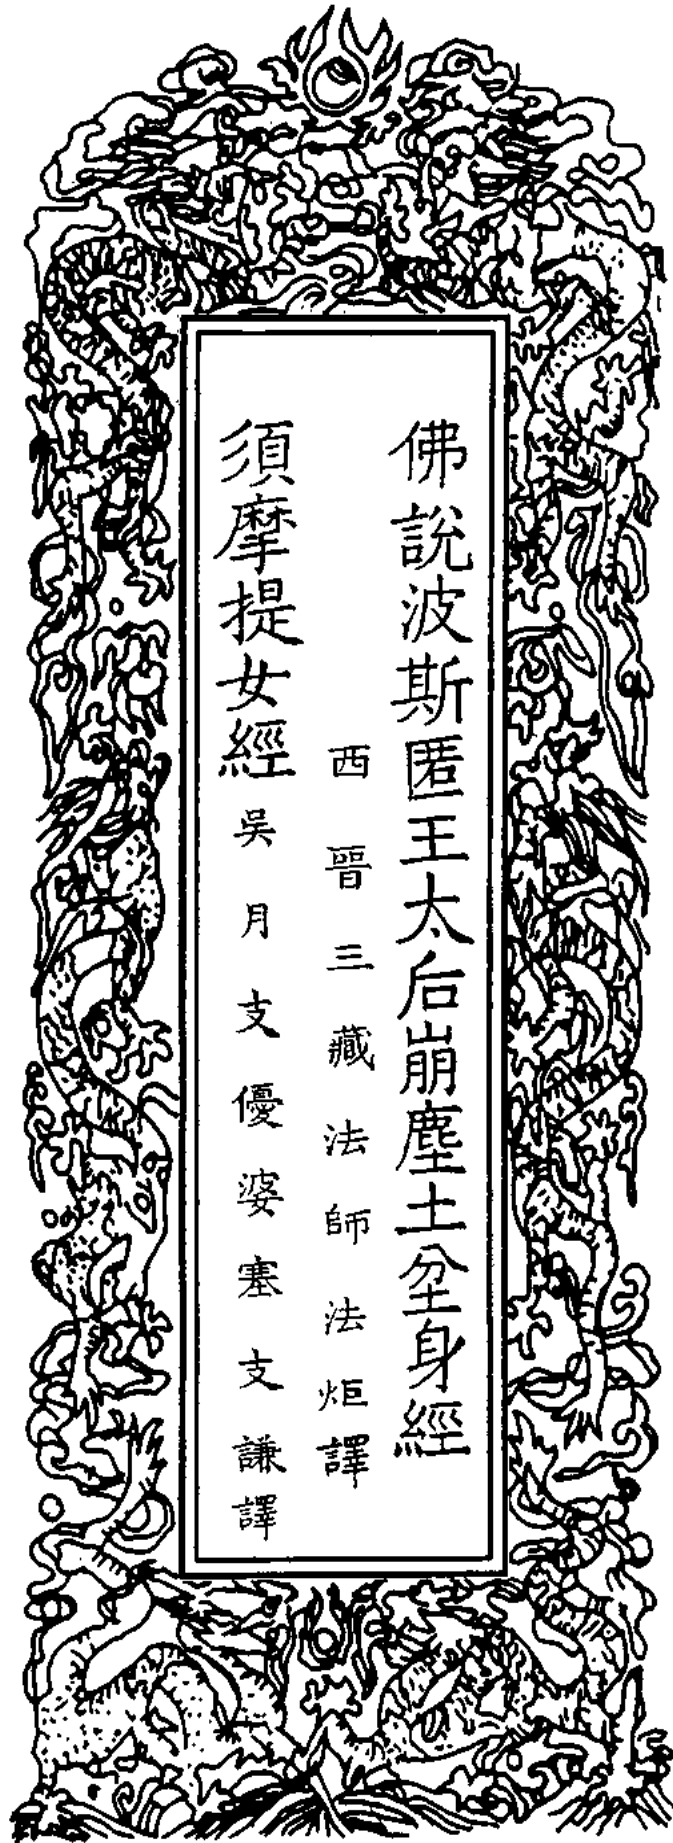 佛說波斯匿王太后崩塵土坌身經
西晉三藏法師法炬譯
須摩提女經吳月支優婆塞支謙譯